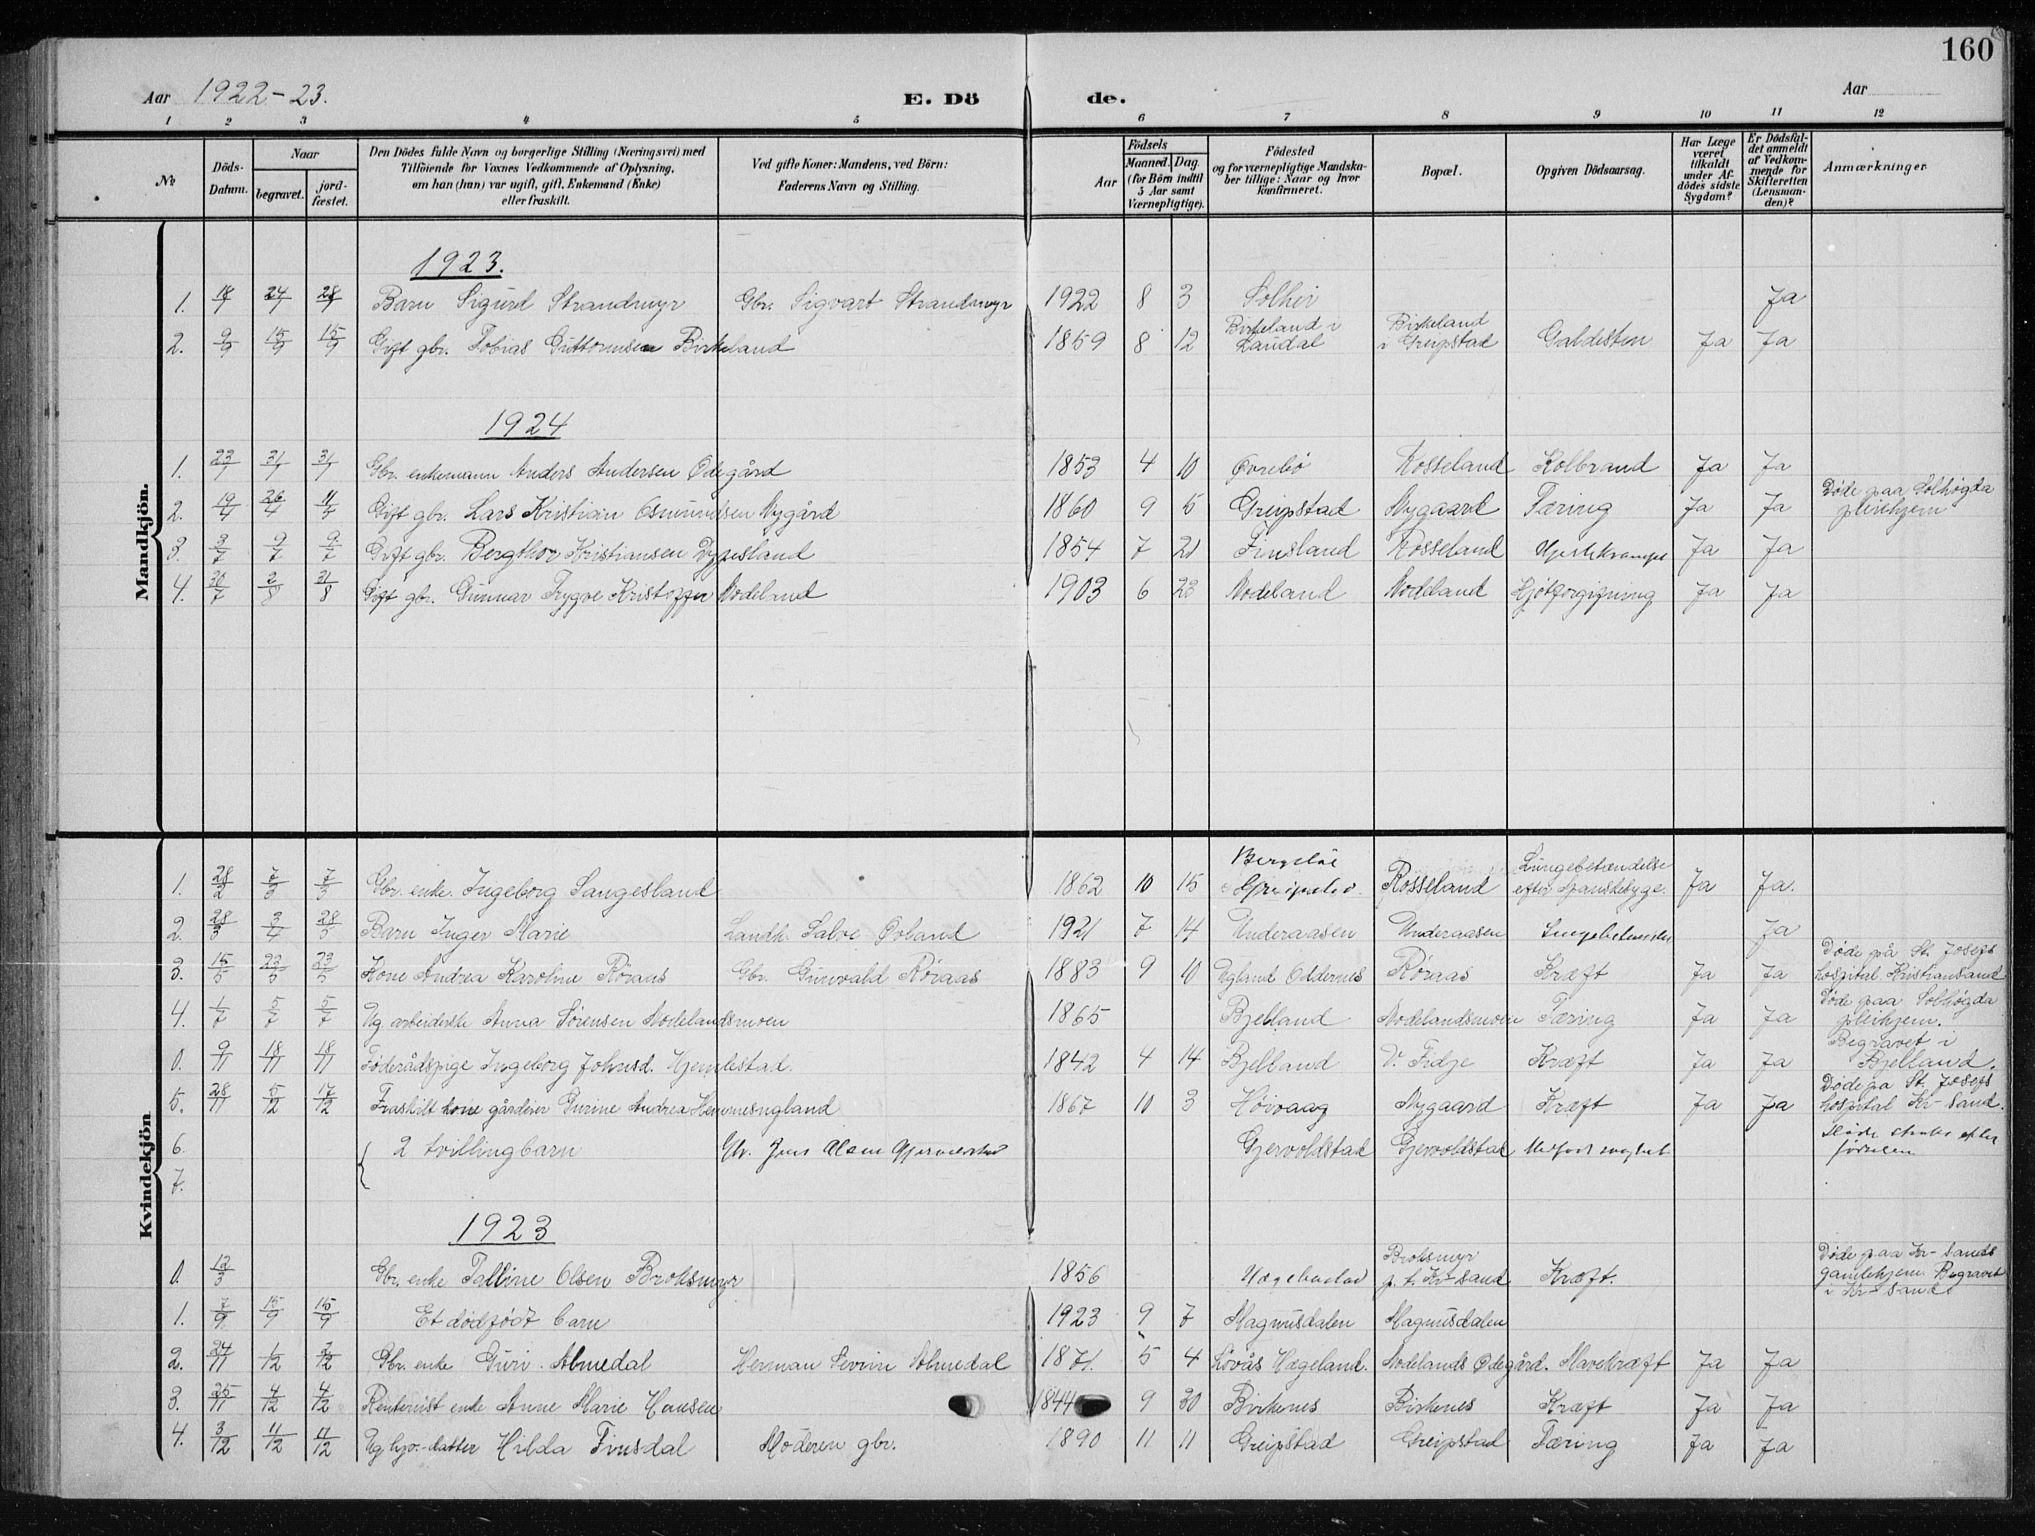 160
Aar 1922-23. E. Dö de. Aar
1 2 3 4 5 6 7 8 9 10 11 12
No
Döds-Datum.
Naar
begravet.
jord-fæstet.
Den Dödes fulde Navn og borgerlige Stilling (Næringsvei) med
Tilföiende for Voxnes Vedkommende af Oplysning,
om han (hun) var ugift, gift, Enkemand (Enke)
eller fraskilt.
Ved gifte Koner: Mandens, ved Börn:
Faderens Navn og Stilling.
Födsels
Aar
Maaned. Dag.
(for Börn indtil
5 Aar samt
Værnepligtige).
Födested
og for værnepligtige Mandska-
ber tillige: Naar og hvor
konfirmeret.
Bopæl.
Opgiven Dödsaarsag.
Har Læge
været
tilkaldt
under Af-
dödes sidste
Sygdom?
Er Dödsfal-
det anmeldt
af Vedkom-
mende for
Skifteretten
(Lensman-
den)?
Anmærkninger.
Mandkjön.
1923.
1. 18/7 24/7 28/7 Barn Sigurd Strandmyr Gbr. Sigvart Strandmyr 1922 8 3 Solhei Ja
2. 9/9 15/9 15/9 Gift gbr. Tobias Guttormsen Birkeland 1859 8 12 Birkeland i Laudal Birkeland i Greipstad Galdesten Ja Ja
1924
1. 23/1 31/1 31/1 Gbr. enkemann Anders Andersen Ødegård 1853 4 10 Øvrebø Rosseland Kolbrand Ja Ja
2. 19/4 26/4 Gift gbr. Lars Kristian Osmundsen Nygård 1860 9 5 Greipstad Nygaard Tæring Ja Ja Døde paa Solhøgda pleiehjem
3. 3/7 9/7 9/7 Gift gbr. Bergthor Kristiansen 1854 7 21 Finsland Rosseland Ja Ja
4. 30/7 2/8 31/8 Gift gbr. Gunnar Trygve Kristoffer Nodeland 1903 6 23 Nodeland Nodeland Kjøtforgiftning Ja Ja
Kvindekjön
1. 28/2 7/3 7/3 Gbr. enke. Ingeborg Sangesland 1862 10 15 Rosseland Lungebetændelse efter spanskesyge. Ja Ja.
2. 28/3 3/4 28/5 Barn Inger Marie Landh. Salve Øvland 1921 7 14 Underaasen Underaasen Lungebetændelse Ja
3. 15/5 23/5 23/5 Kone Andrea Karoline Røraas Gbr. Gunvald Røraas 1883 9 10 Ugland Oddernes Røraas Kræft Ja Ja Døde på St. Josefs hospital Kristiansand
4. 1/7 5/7 5/7 Ug arbeiderske Anna Sørensen Nodelandsmoen 1865 Bjelland Nodelandsmoen Tæring Ja Ja Døde paa Solhøgda pleiehjem.
0. 9/11 18/11 18/11 Føderådspige Ingeborg Johnsd. Hjemlestad. 1842 4 14 Bjelland V. Fidje Kræft Ja Ja Begravet i Bjelland.
5. 28/11 5/12 17/12 Fraskilt kone gårdeier Gurine Andrea Hemmesugland 1867 10 3 Høivaag Nygaard Kræft Ja Ja Døde pa St. Josefs hospital Kr-sand.
6. 2 tvillingbarn Gbr. Jens Gjervoldstad Gjervoldstad Døde straks efter fødselen
7.
1923
0. 12/3 Gbr. enke Talline Olsen Broksmyr 1856 Broksmyr p.t. Kr-sand Kræft. Døde paa Kr-sands gamlehjem Begravet i Kr-sand
1. 7/9 15/9 15/9 Et dødfødt barn 1923 9 7 Magnusdalen Magnusdalen
2. 24/11 1/12 2/12 Gbr. enke Guri Almedal Herman Severin Solmedal 1871. 5 4 Løvås Hægeland. Nodelands Ødegård. Mavekræft Ja Ja
3. 25/11 4/12 4/12 Rentenist enke Anne Marie Hansen 1844 9 30 Birkenes Birkenes Kræft Ja Ja
4. 3/12 11/12 11/12 Ug hjv. datter Hilda Finsdal Moderen gbr. 1890 11 11 Greipstad Greipstad Tæring Ja Ja